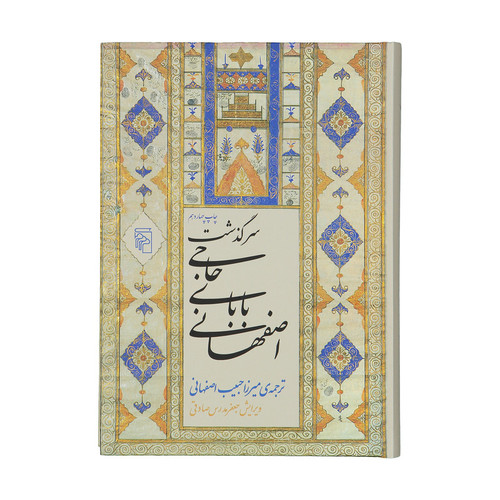 چاپ چهاردهم
سرگذشت
حاجی
بابای
اصفهانی
ترجمه‌ی میرزا حبیب اصفهانی
ویرایش جعفر مدرس صادقی